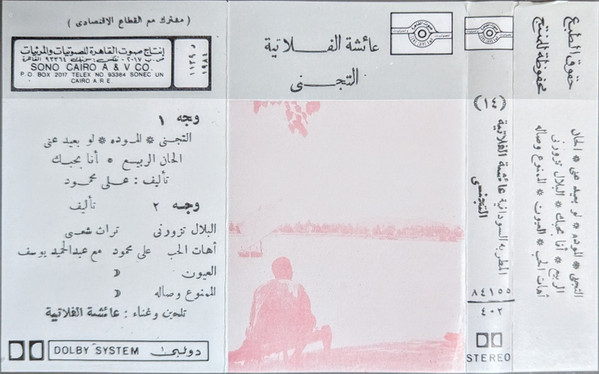 حقوق الطبع
محفوظة للمنتج
التجنى * الموده * لو بعيد عنى * الحان
الربيع * أنا بحبك * البلال تزورنى
أهات الحب * العيون * الممنوع وصاله
(١٤)
المطربه السودانية عائشة الفلاتية
التجنى
٨٤١٥٥
٤٠٢
STEREO
عائشة الفلاتية
التجنى
( مشترك مع القطاع الاقتصادى )
إنتاج صوت القاهرة للصوتيات والمرئيات
SONO CAIRO A & V CO.
P.O. BOX 2017 TELEX NO. 93364 SONEC UN
CAIRO A.R.E.
١٩٨٤
وجه ١
التجنى * الموده * لو بعيد عنى
الحان الربيع * أنا بحبك
تأليف : على محمود
وجه ٢ تأليف
البلال تزورنى تراث شعبى
أهات الحب على محمود مع عبدالحميد يوسف
العيون "
الممنوع وصاله "
تلحين وغناء : عائشة الفلاتية
DOLBY SYSTEM دولبى